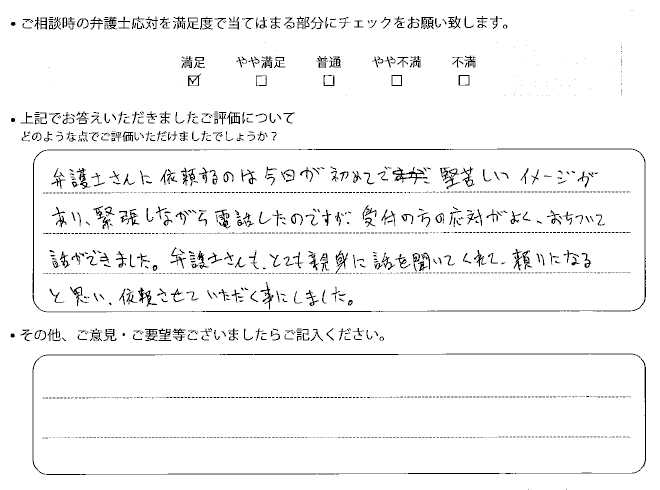 • ご相談時の弁護士応対を満足度で当てはまる部分にチェックをお願い致します。
満足 やや満足 普通 やや不満 不満
☑ ☐ ☐ ☐ ☐
• 上記でお答えいただきましたご評価について
どのような点でご評価いただけましたでしょうか？
弁護士さんに依頼するのは今回が初めてで 堅苦しいイメージが
あり、緊張しながら電話したのですが、受付の方の応対がよく、おちついて
話ができました。弁護士さんも、とても親身に話を聞いてくれて、頼りになる
と思い、依頼させていただく事にしました。
• その他、ご意見・ご要望等ございましたらご記入ください。